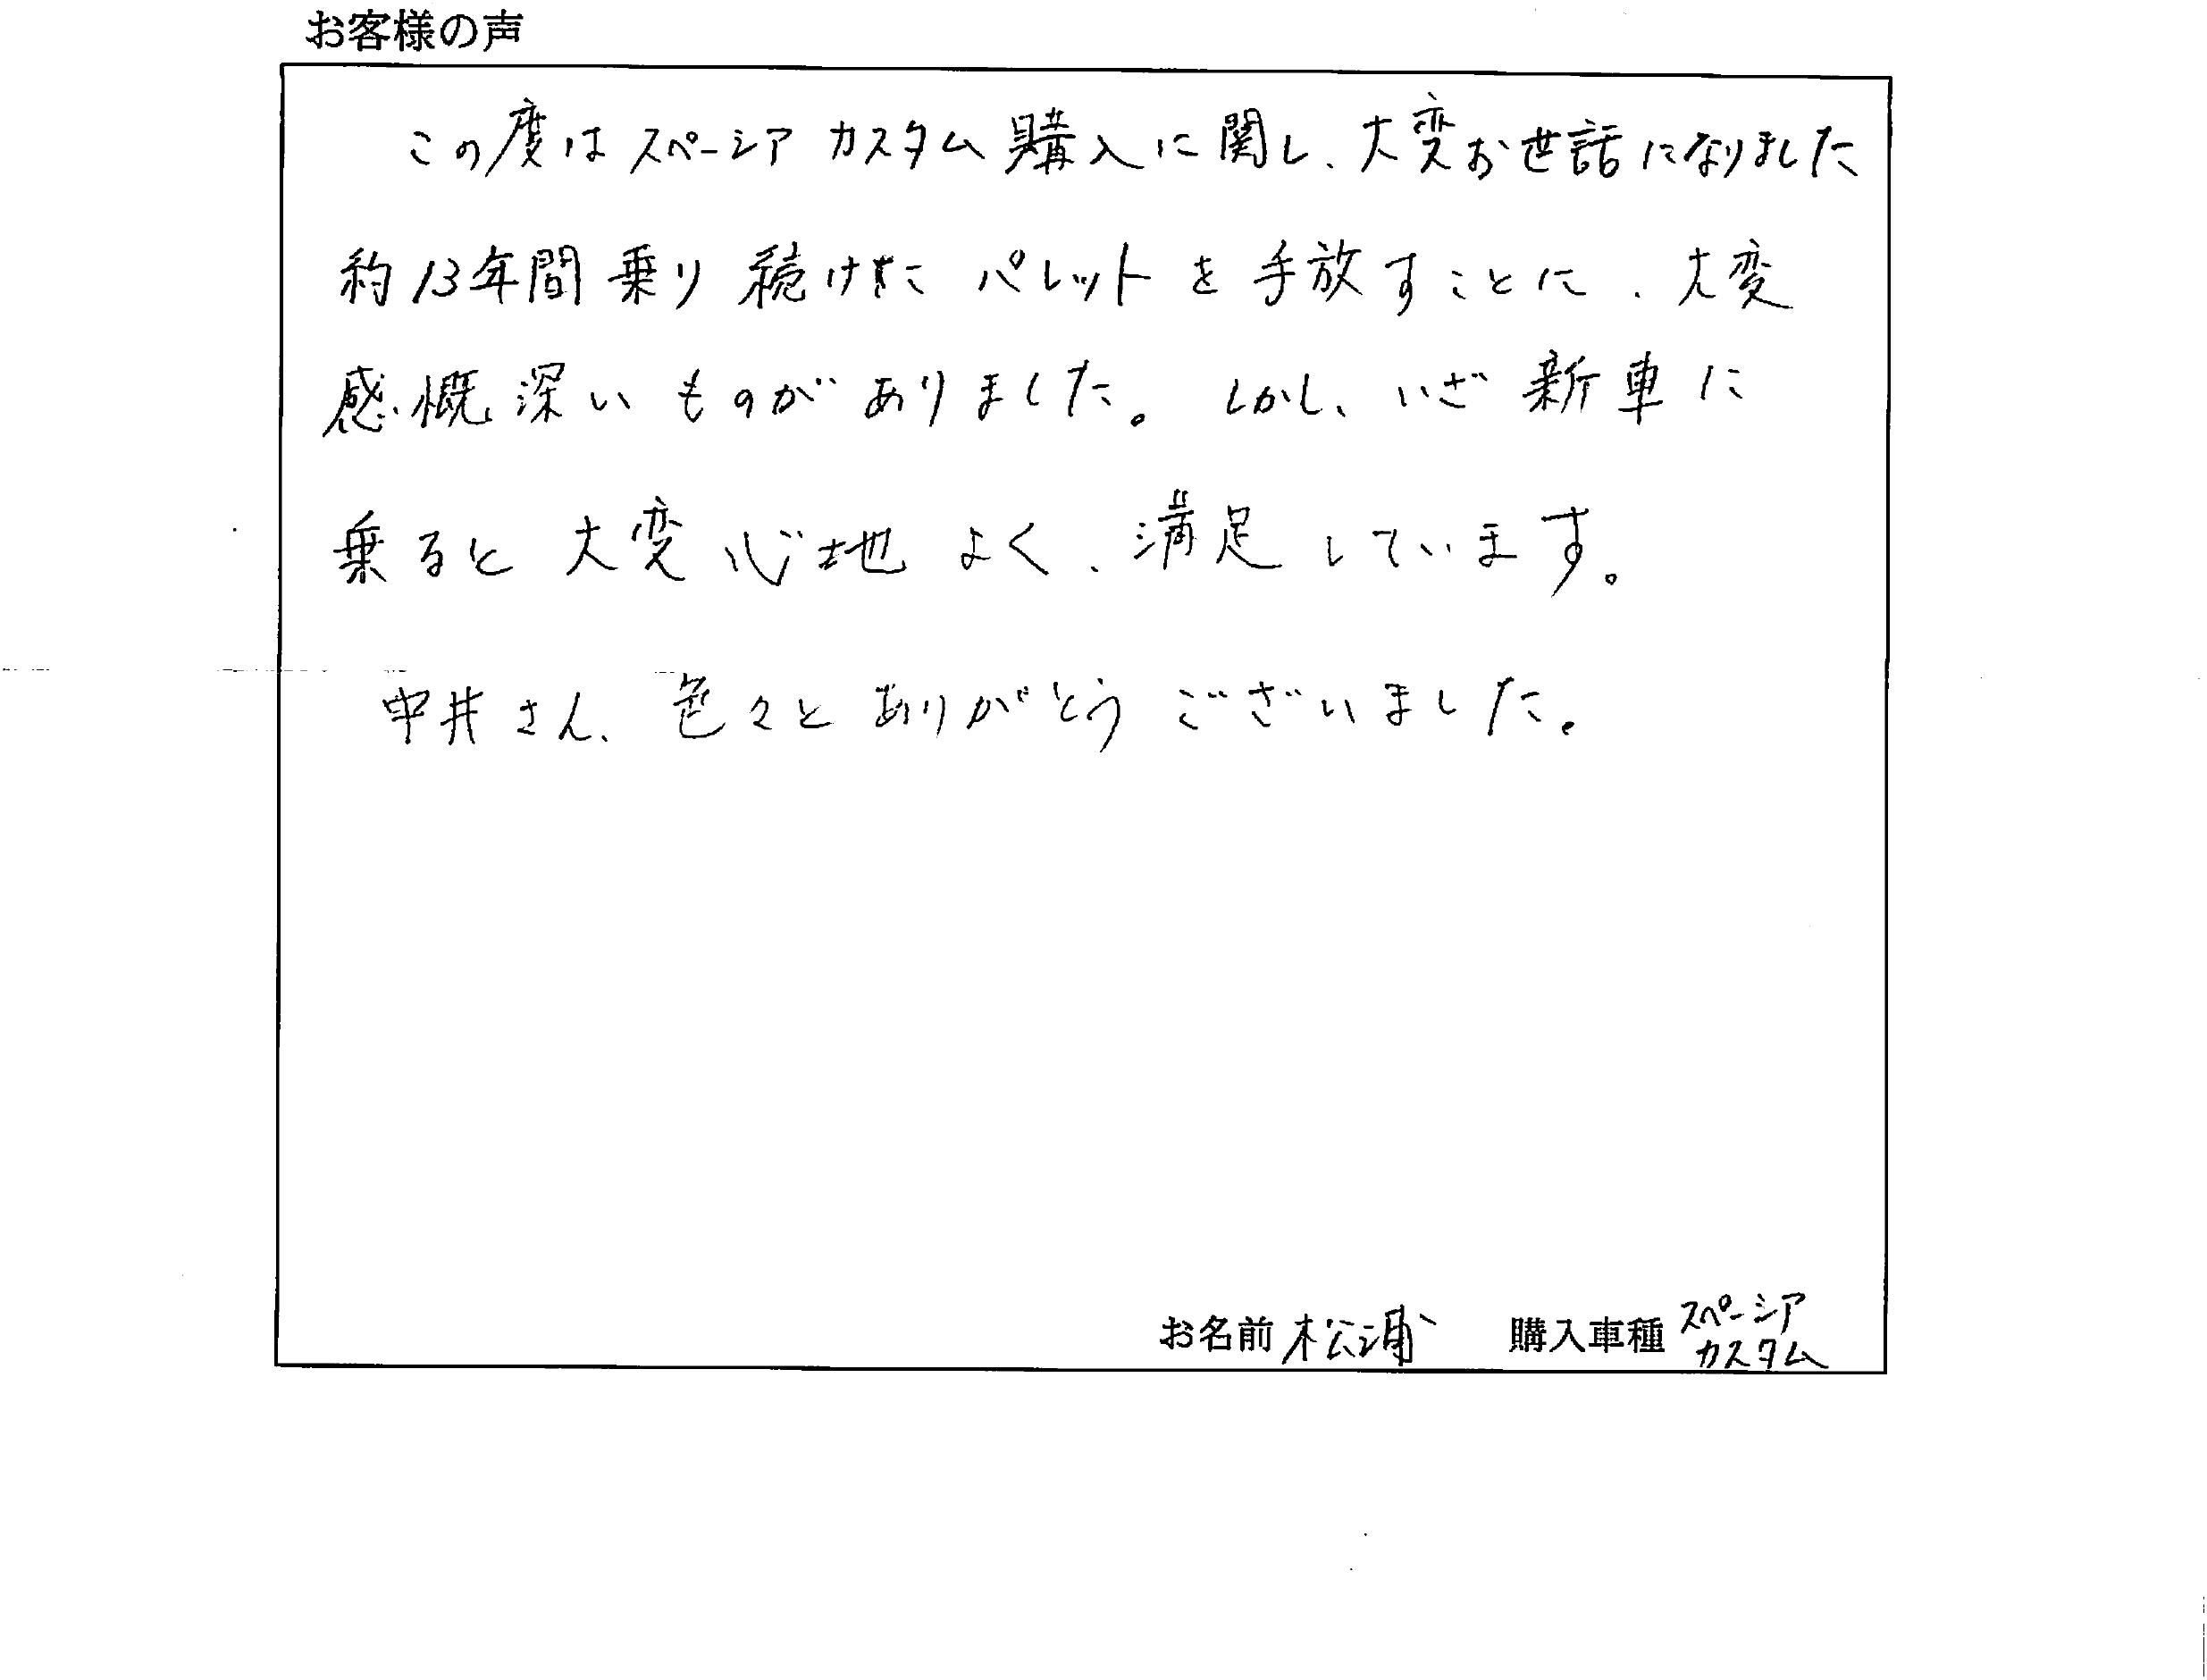 お客様の声
この度はスペーシア カスタム購入に関し、大変お世話になりました
約13年間乗り続けた パレットを手放すことに、大変
感慨深いものがありました。しかし、いざ新車に
乗ると大変心地よく、満足しています。
中井さん、色々とありがとうございました。
お名前 松浦 購入車種 スペーシア
カスタム